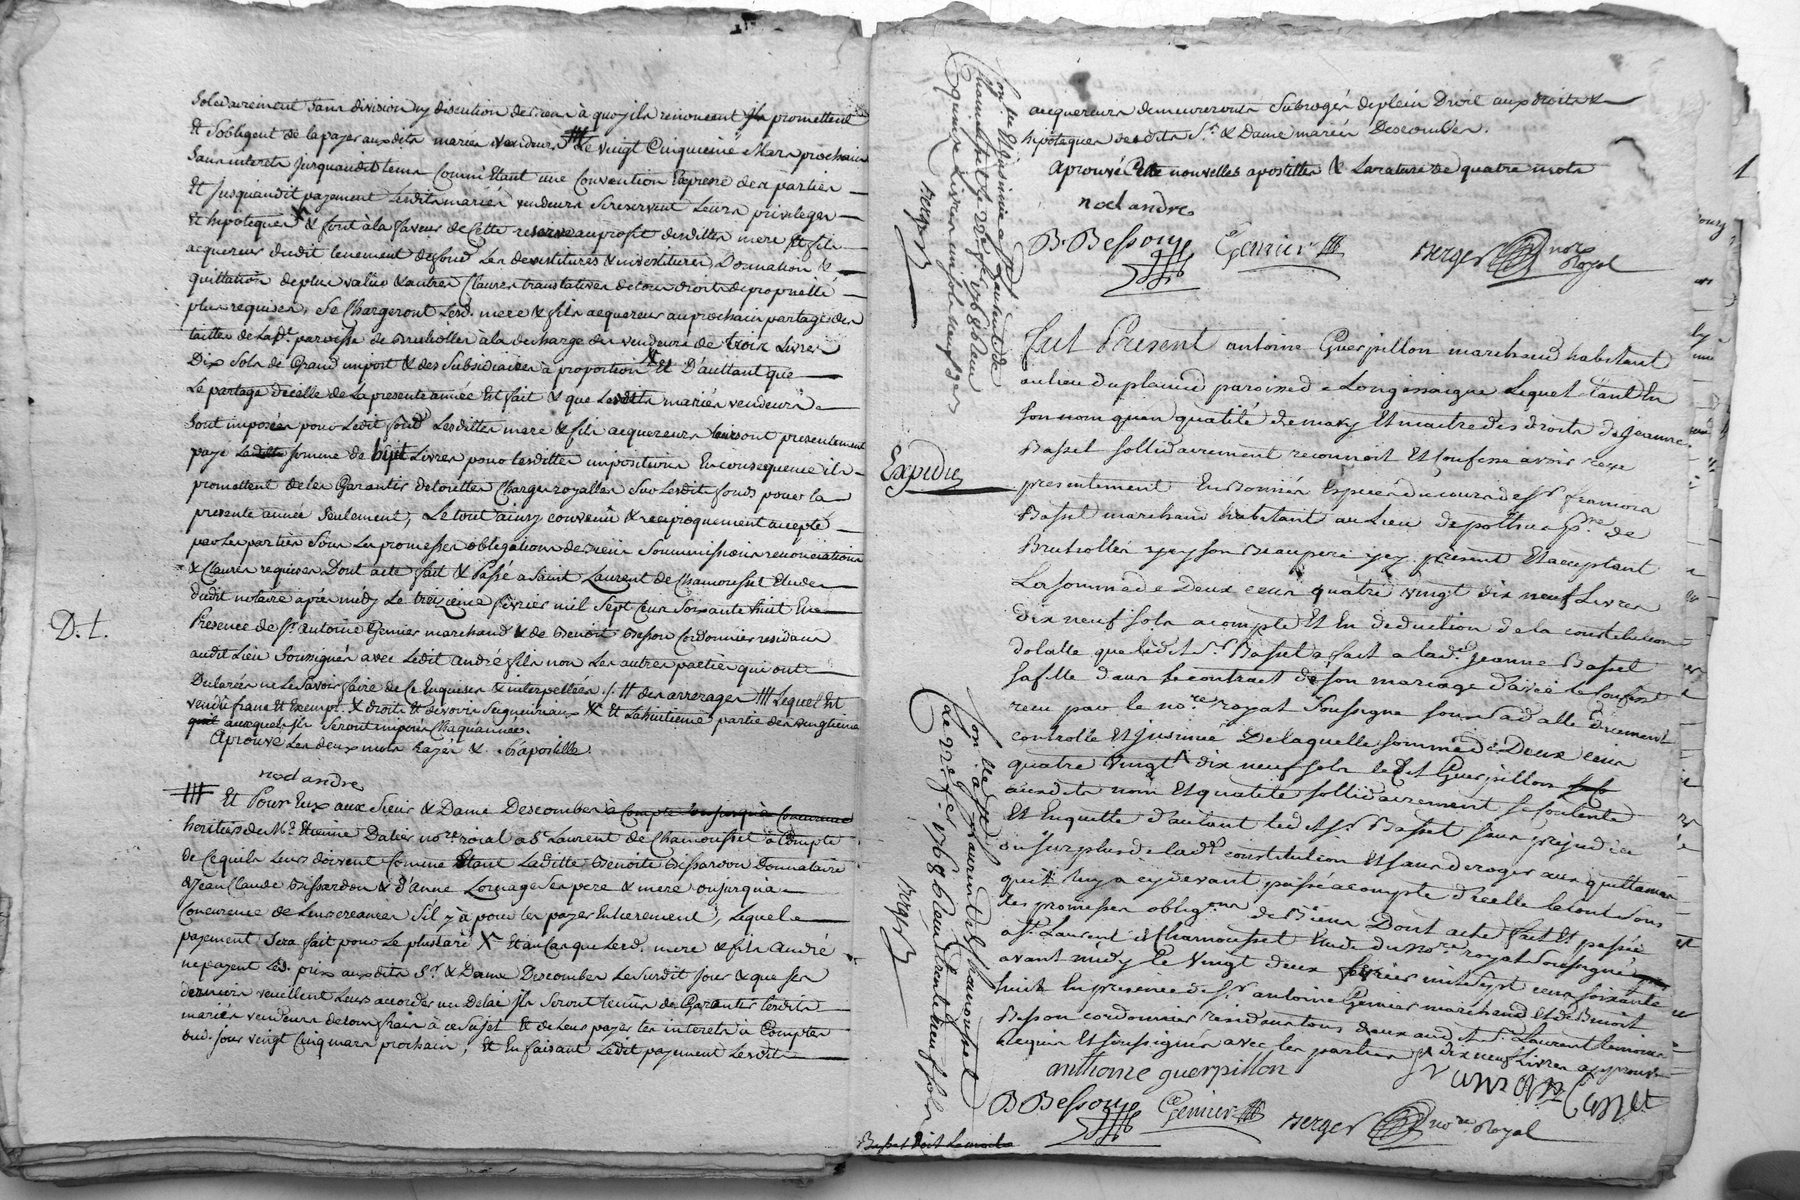 solidairement sans division ny discution de biens à quoy ils renoncent ils promettent
et s'obligent de la payer auxdits mariés vendeurs # Le vingt Cinquieme Mars prochain
sans interets jusquaudit tems Comme Etant une Convention Expresse des parties
et jusquaudit payement lesdits mariés vendeurs se reservent leurs privileges
et hipoteques X & tout à la faveur de Cette reserve au profit desdittes mere et fils
acquereurs dudit tenement de fond les devestitures & investitures, Donnation &
quittation de plus value & autres Clauses translatives de tous droits de propriété
plus requises, se Chargeront lesd. mere & fils acquereurs au prochain partage des
tailles de lad. parroisse de Brussiolles à la decharge des vendeurs de trois Livres
Dix sols de Grand impost & des subsidiaires à proportion X Et D'autant que
Le partage d'icelle de La presente année Est fait & que lesdits mariés vendeurs
sont imposés pour ledit fond lesdittes mere & fils acquereurs leurs ont presentement
payé laditte somme de huit Livres pour lesdittes impositions En consequence ils
promettent de les Garantir de touttes Charges royalles sur lesdits fonds pour la
presente année seulement, Le tout ainsy convenu & reciproquement accepté
par les parties sous les promesses obligations de biens soummissions renonciations
& Clauses requises Dont acte fait & Passé a Saint Laurent de Chamousset Etude
dudit notaire après midy Le treizieme fevrier mil sept cent soixante huit En
Presence de Sr. antoine Genier marchand & de Benoit Besson Cordonnier residans
audit Lieu soussignés avec ledit andré fils non les autres parties qui ont
Declarés ne le savoir faire de Ce Enquises & interpellées ./. # des arrerages ### Lequel Est
vendu franc et Exempt X droits et devoirs seigneuriaux X et La huitieme partie des vingtiemes
auxquels ils seront imposés Chaqu'année.
Aprouvé les deux mots rayés & apostille
D. t.
noel andre
### Et Pour Eux aux Sieur & Dame Descombes à Compte ou jusqu'à Concurrance
heritiers de Me. Etienne Dalier nore. roial a St Laurent de Chamousset à Compte
de Cequils leurs doivent Comme Etant Laditte Benoite Bissardon Donnataire
de Jean Claude Bissardon & d'anne Lornage ses pere & mere ou jusqua
Concurence de leurs creances s'il y à pour les payer Entierement, Lequel
payement sera fait pour le plus tard X Et au Cas que Lesd. mere & fils André
ne payent led. prix auxdits Sr. & Dame Descombes le susdit jour & que ses
derniers veuillent leurs accorder un Delai ils seront tenus de Garantir lesdits
mariés vendeurs de tous frais à ce sujet Et de leurs payer les interets à Compter
dud. jour vingt Cinq mars prochain, Et En faisant Ledit payement lesdits
acquereurs demeureront Subrogés de plein Droit aux droits &
hipoteques desdits Sr. & Dame mariés Descombes.
Aprouvé Cette nouvelles apostilles & La rature de quatre mots
noel andre
B. Besson Genier Berger nore Royal
Con. lé Et insinué a St Laurent de
Chamousset le 22e fev. 1768 Recu
quinze Livres un sol neuf den.
Berger
Expedié
Fut Present antoine Guerpillon marchand habitant
au lieu du plainet paroisse de Longessaigne Lequel Tant En
son nom quen qualité de mary Et maitre des droits de jeanne
Basset sollidairement reconnoit Et Confesse avoir recu
presentement En Bonnes Especes du cours de Sr. francois
Basset marchand habitant au Lieu de pothu psse. de
Brusiolles yey son Beaupere yey present Et acceptant
La somme de Deux cens quatre vingt dix neuf Livres
dix neuf sols acompte Et En deduction de la constitution
dotalle que ledit Sr. Basset a fait a lad. jeanne Basset
sa fille dans le contract de son mariage d'avec le Confess.
recu par le nore. royal soussigné sous sa dalle duement
controllé Et jnsinué De laquelle somme de Deux cens
quatre vingt dix neuf sols ledit Guerpillon
ausdits nom Et qualité sollidairement se Contente
Et Enquitte d'autant ledit Sr. Basset sans prejudice
du surplus de lad. constitution Et sans deroger aux quittances
quil luy a cydevant passé acompte d'icelle le tout sous
les promesses obligons. de Biens Dont acte fait Et passé
a St. Laurent de Chamousset Etude du nore. royal soussigné
avant midy Le vingt deux fevrier mil sept cens soixante
huit En presence de Sr. antoine Genier marchand Et de Benoit
Besson cordonnier residant tous deux aud. St. Laurent temoins
requis Et soussignés avec les parties X dix neuf Livres approuvé
anthoine guerpillon francois Basset
B Besson Genier Berger nore. Royal
Con. lé a St Laurent de Chamousset
le 22e fev. 1768 Recu trente neuf sols
Berger
Basset doit le controle